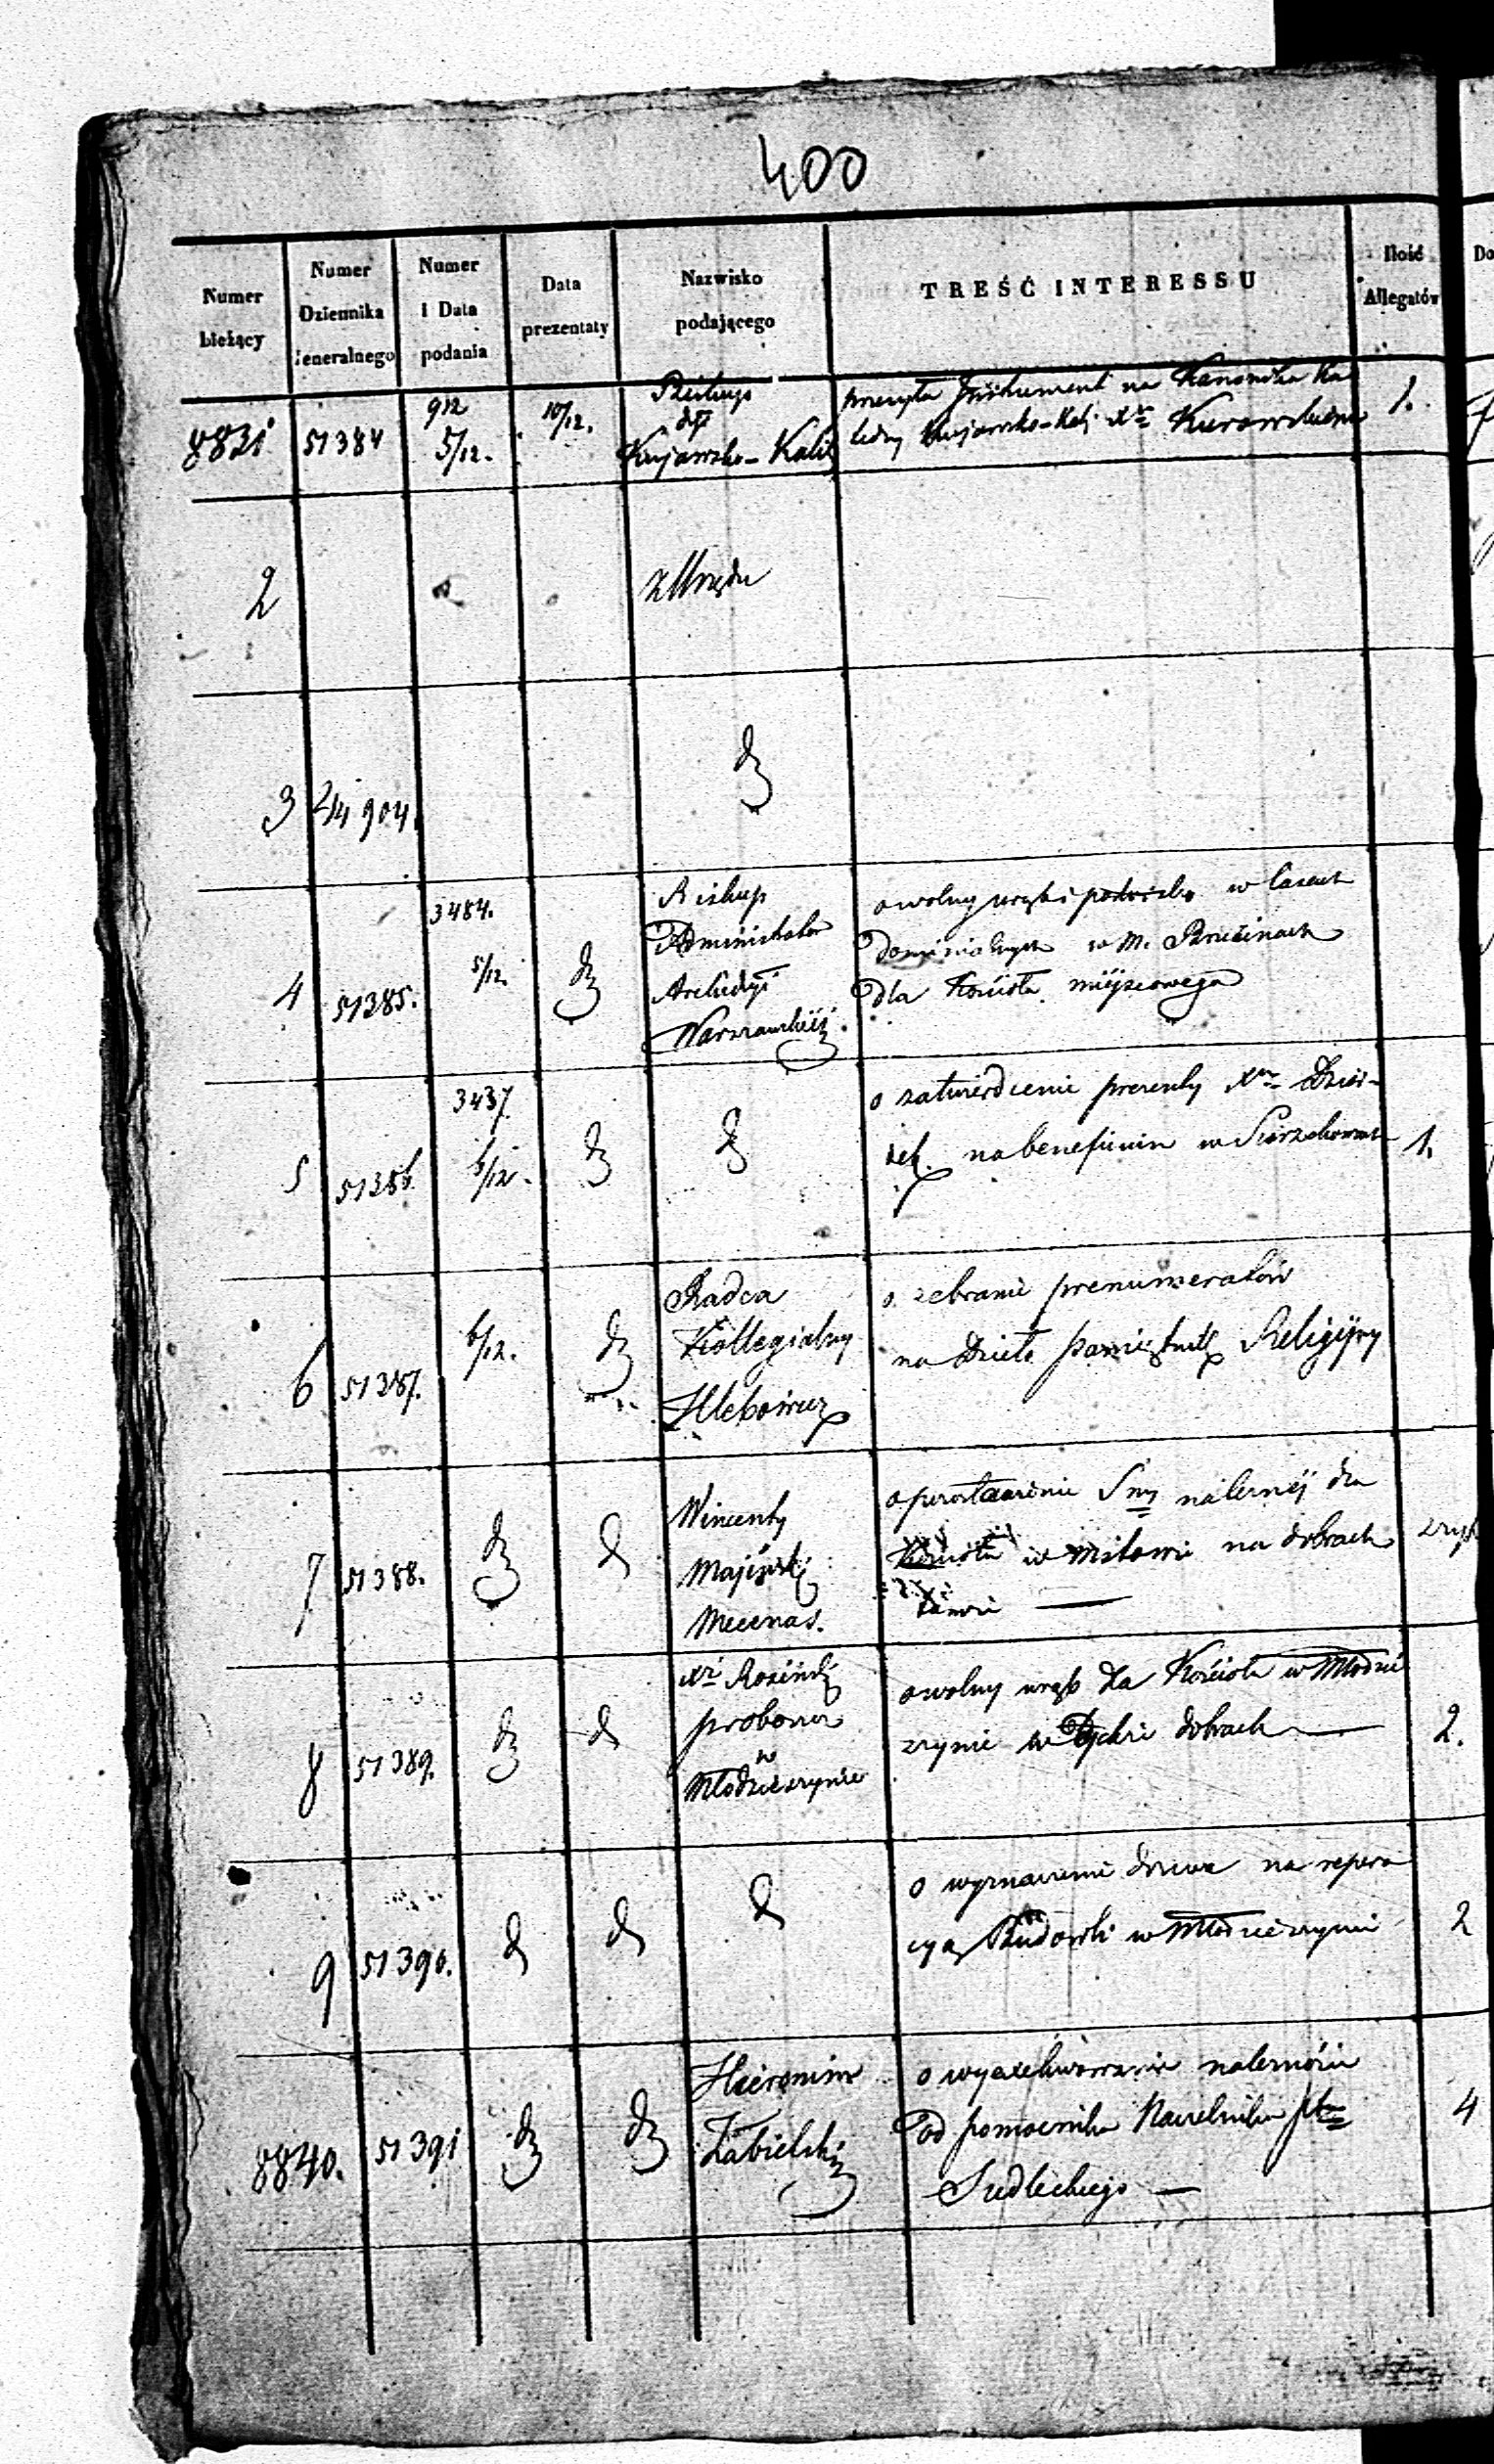 400
Numer bieżący
Numer Dziennika Generalnego
Numer i Data podania
Data prezentaty
Nazwisko podającego
TREŚĆ INTERESSU
Ilość Allegatów
Do
8831 51384 912 5/12. 10/12. Biskup Dyi Kujawsko-Kalis
przesyła Instrument na Kanonika Ka
tedry Kujawsko-Kal. Xa Kurowskiego 1.
2 z Urzędu
3 904. do
4 51385. 3484. 5/12. do
Biskup
Administrator
Archidyi
Warszawskiej.
o wolny wrąb w lasach
Dominialnych w m.
dla Kościoła miejscowego
5 51386. 3437 6/12. do do
o zatwierdzenie prezenty Xa
na beneficium w 1.
6 51387. 6/12. do
Radca
Kollegialny
Hlebowicz
o zebranie prenumeratów
na dzieło pamiętnik Religijny
7 51388. do do
Wincenty
Majewski
Mecenas.
Sumy należnej dla
Kościoła w na dobrach
8 51389. do do
Xdz Rosiński
proboszcz
w
Młodzieszynie
o wolny wrąb dla Kościoła w Młodzie
szynie w Tychże dobrach
2.
9 51390. do do do
o wyznaczenie drzewa na repera
cyą Budowli w Młodzieszynie 2
8840. 51391 do do
Hieronim
Zabielski
o wyexekwowanie należności
od pomocnika Naczelnika Ptu
Siedleckiego 4